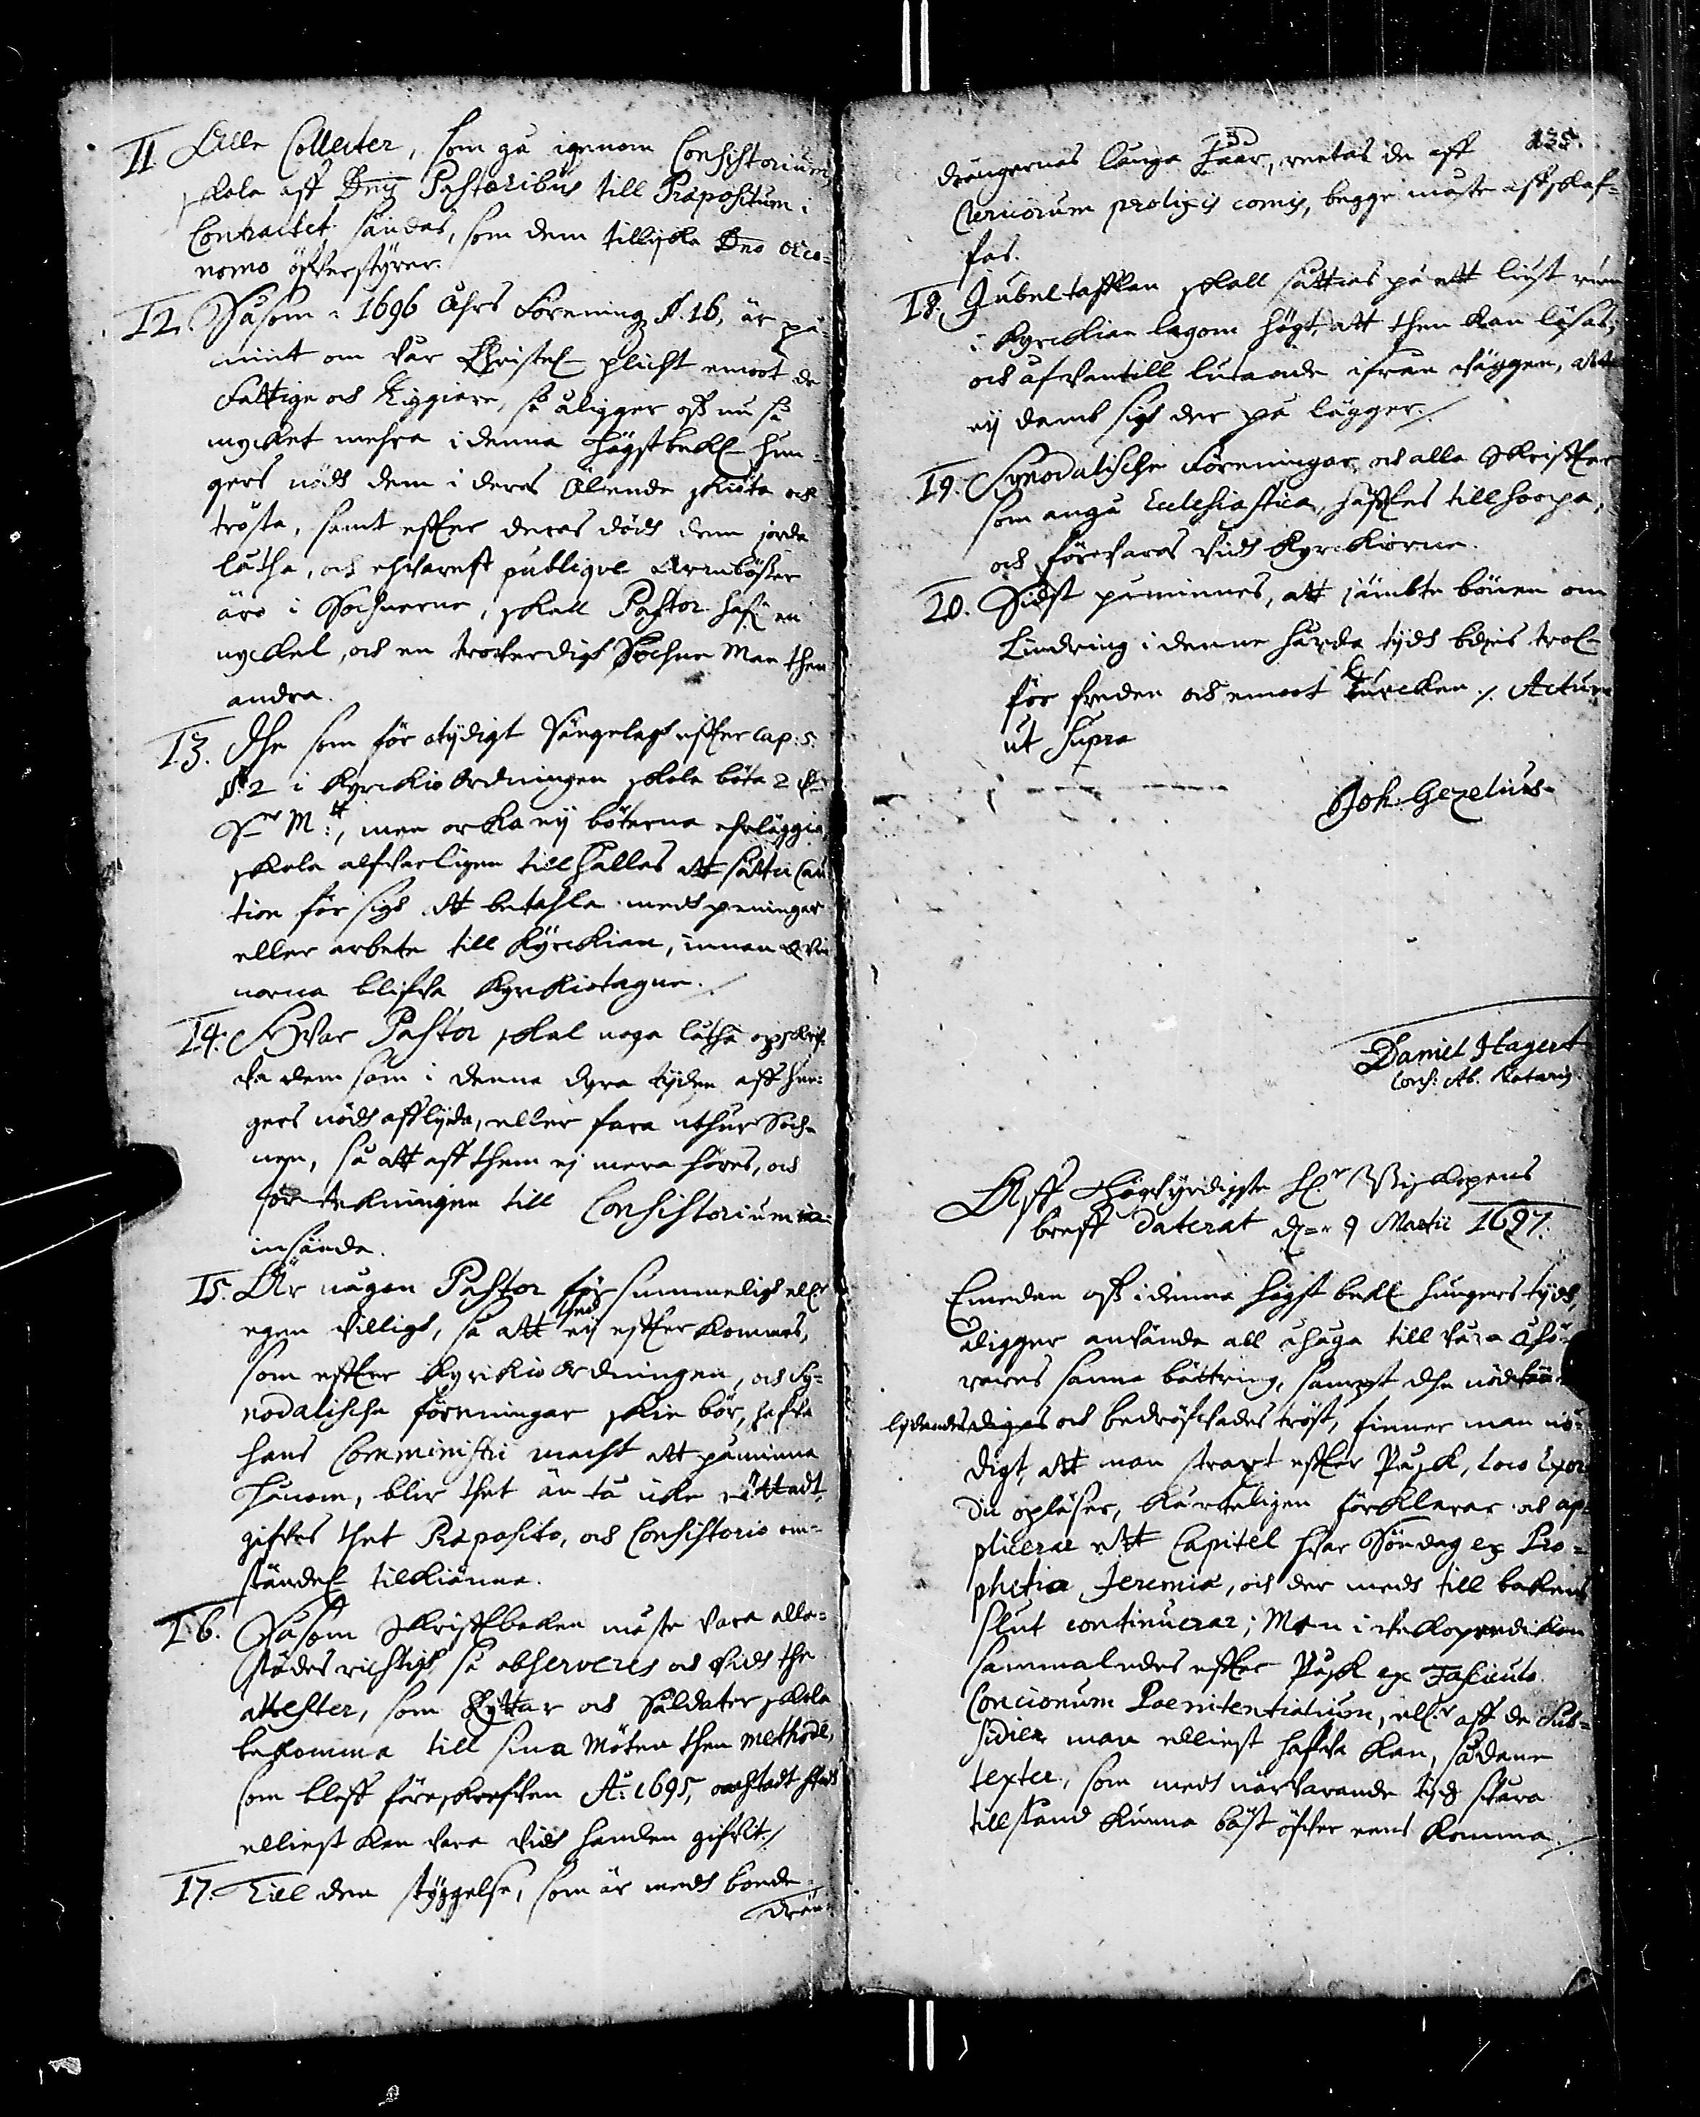 11 Alle Collecter, som gå igenom Consistorium,
skola aff Dnis Pastoribus till Præpositum i
Contractet sändas, som dem tillijka Dno Oeco-
nomo öfwerstyrer.
12. Såsom i 1696 Åhrs Förening §. 16, är på-
mint om wår Christel. plicht emoot de
Fattige och Tiggiare, så åligger oss nu så
mycket mehra i denna högstbekl. hun-
gers nödh dem i deras Älende skiöta och
trösta, samt effter deras dödh dem jorda
låtha, och ehwarest publique Armbösser
äro i Sochnerne, skall Pastor hafw. en
nyckel, och en trowerdigh Sochne Man then
andra.
13. The som för otydigt Sängelagh effter Cap: 5.
§. 2 i Kyrckio Ordningen skola böta 2 dr
Sr Mt:, men orka ey böterna ehrläggia,
skola alfwarligen tillhållas att sättia Cau-
tion för sigh att betahla medh peningar
eller arbete till Kyrckian, innan Qwin-
norna blifwa Kyrckiotagne./
14. Hwar Pastor skal noga låtha opskrif-
wa dem som i denna dyra tyden aff hun-
gers nödh afflyda, eller fara uthur Soch-
nen, så att aff them ej mera höres, och
förtekningen till Consistorium
insända.
15. Är någon Pastor försummeligh ellr
egen willigh, så att thed ey effterkommes,
som effter Kyrckio Ordningen, och Sy-
nodalische föreningar skie bör, hafwa
hans Comministri macht att påminna
honom, blir thet än tå icke rättadt,
gifwes thet Præposito, och Consistorio om-
ständel. tilkiänna.
16. Såsom Skrifftboken måste wara alle-
städes richtigh, så observeres och widh the
attester, som Ryttar och Såldater skola
bekomma till sina Möten then Methode,
som bleff föreskrefwen Ao: 1695, 
elliest kan wara widh handen gifwit./
17. Till den styggelse, som är medh bonde
drän-
135.
drängernas långa Håår, rentas de aff
Clericorum prolixis comis, begge måste affskaf-
fas.
18. Jubeltafflan skall sättias på ett liust rum
i Kyrckian lagom högt, att then kan läsas,
och ofwantill lutande ifrån wäggen, att
ey damb sigh der på lägger./
19. Synodalische Föreningar, och alla Skriffter
som angå Ecclesiastica, häfftes till hoopa,
och förwaras widh Kyrckiorne.
20. Sidst påminnes, att jämbte bönen om
Lindring i denne hårda tydh bedies trol.
för freden och emoot Turcken./ Actum
ut supra
Joh. Gezelius
Daniel Hagert
Cons: Ab. Notariy
Aff Högwyrdigste H:r Biskopens
breff Daterat d. 9 Martii 1697.
Emedan oss i denna högst bekl. hungers tydh,
åligger anwända all åhåga till wåra Åhö-
rares sanna bättring, sampt the nödh-
lydandes och bedröfwades tröst, finner man nö-
digt, att man straxt effter Påsk, loco Exor-
dii opläser, kårteligen förklarar och ap-
plicerar ett Capitel hwar Söndag ex Pro-
phetia Jeremiæ, och der medh till bokens
slut continuerar; Men i weckopredikan
sammaledes effter Påsk ex Fasciculo
Concionum Poenitentialium, ellr aff de Sub-
sidier man elliest hafwa kan, sådane
texter, som medh närwarande tydh swåra
tillstånd kunna bäst öfwer eens komma./